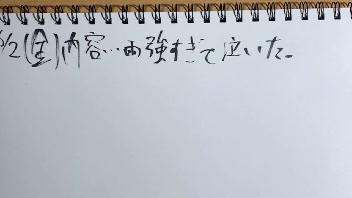 /2(金)内容…雨強すぎて泣いた。